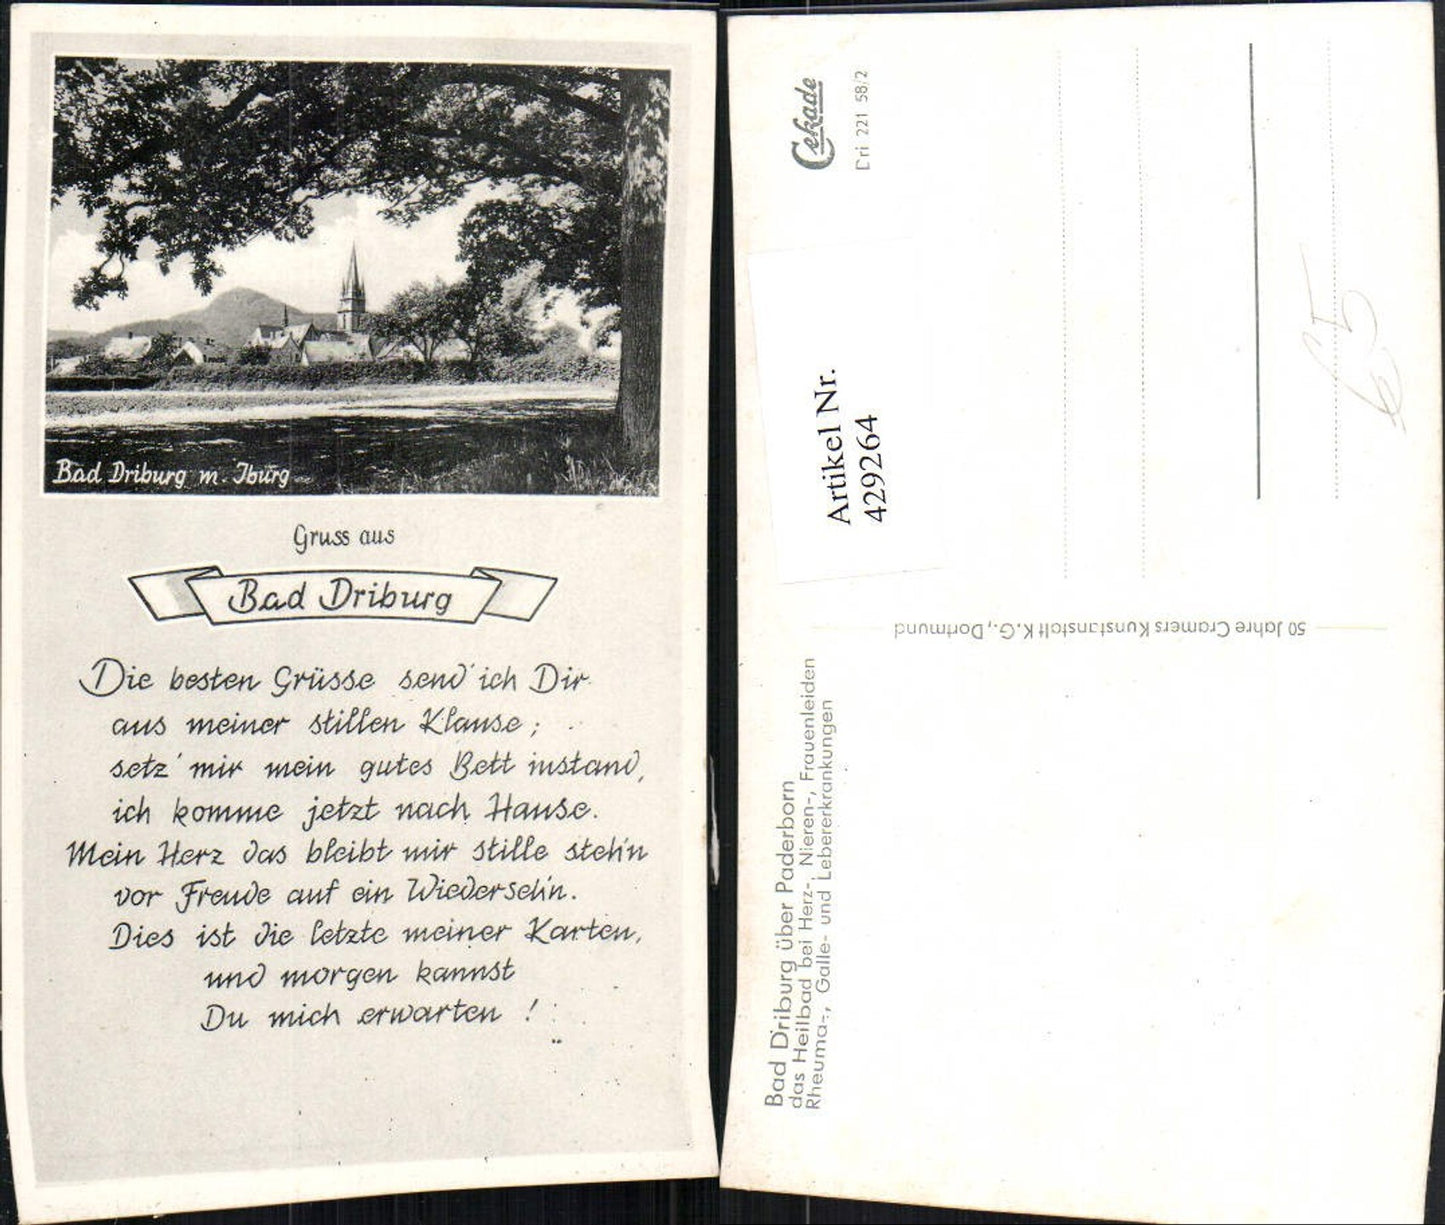 Bad Driburg m. Iburg
Gruss aus
Bad Driburg
Die besten Grüsse send' ich Dir
aus meiner stillen Klause;
setz' mir mein gutes Bett instand,
ich komme jetzt nach Hause.
Mein Herz das bleibt mir stille steh'n
vor Freude auf ein Wiederseh'n.
Dies ist die letzte meiner Karten,
und morgen kannst
Du mich erwarten !
Cekade
Dri 221 58/2
Artikel Nr.
429264
50 Jahre Cramers Kunstanstalt K.G., Dortmund
Bad Driburg über Paderborn
das Heilbad bei Herz-, Nieren-, Frauenleiden
Rheuma-, Galle- und Lebererkrankungen